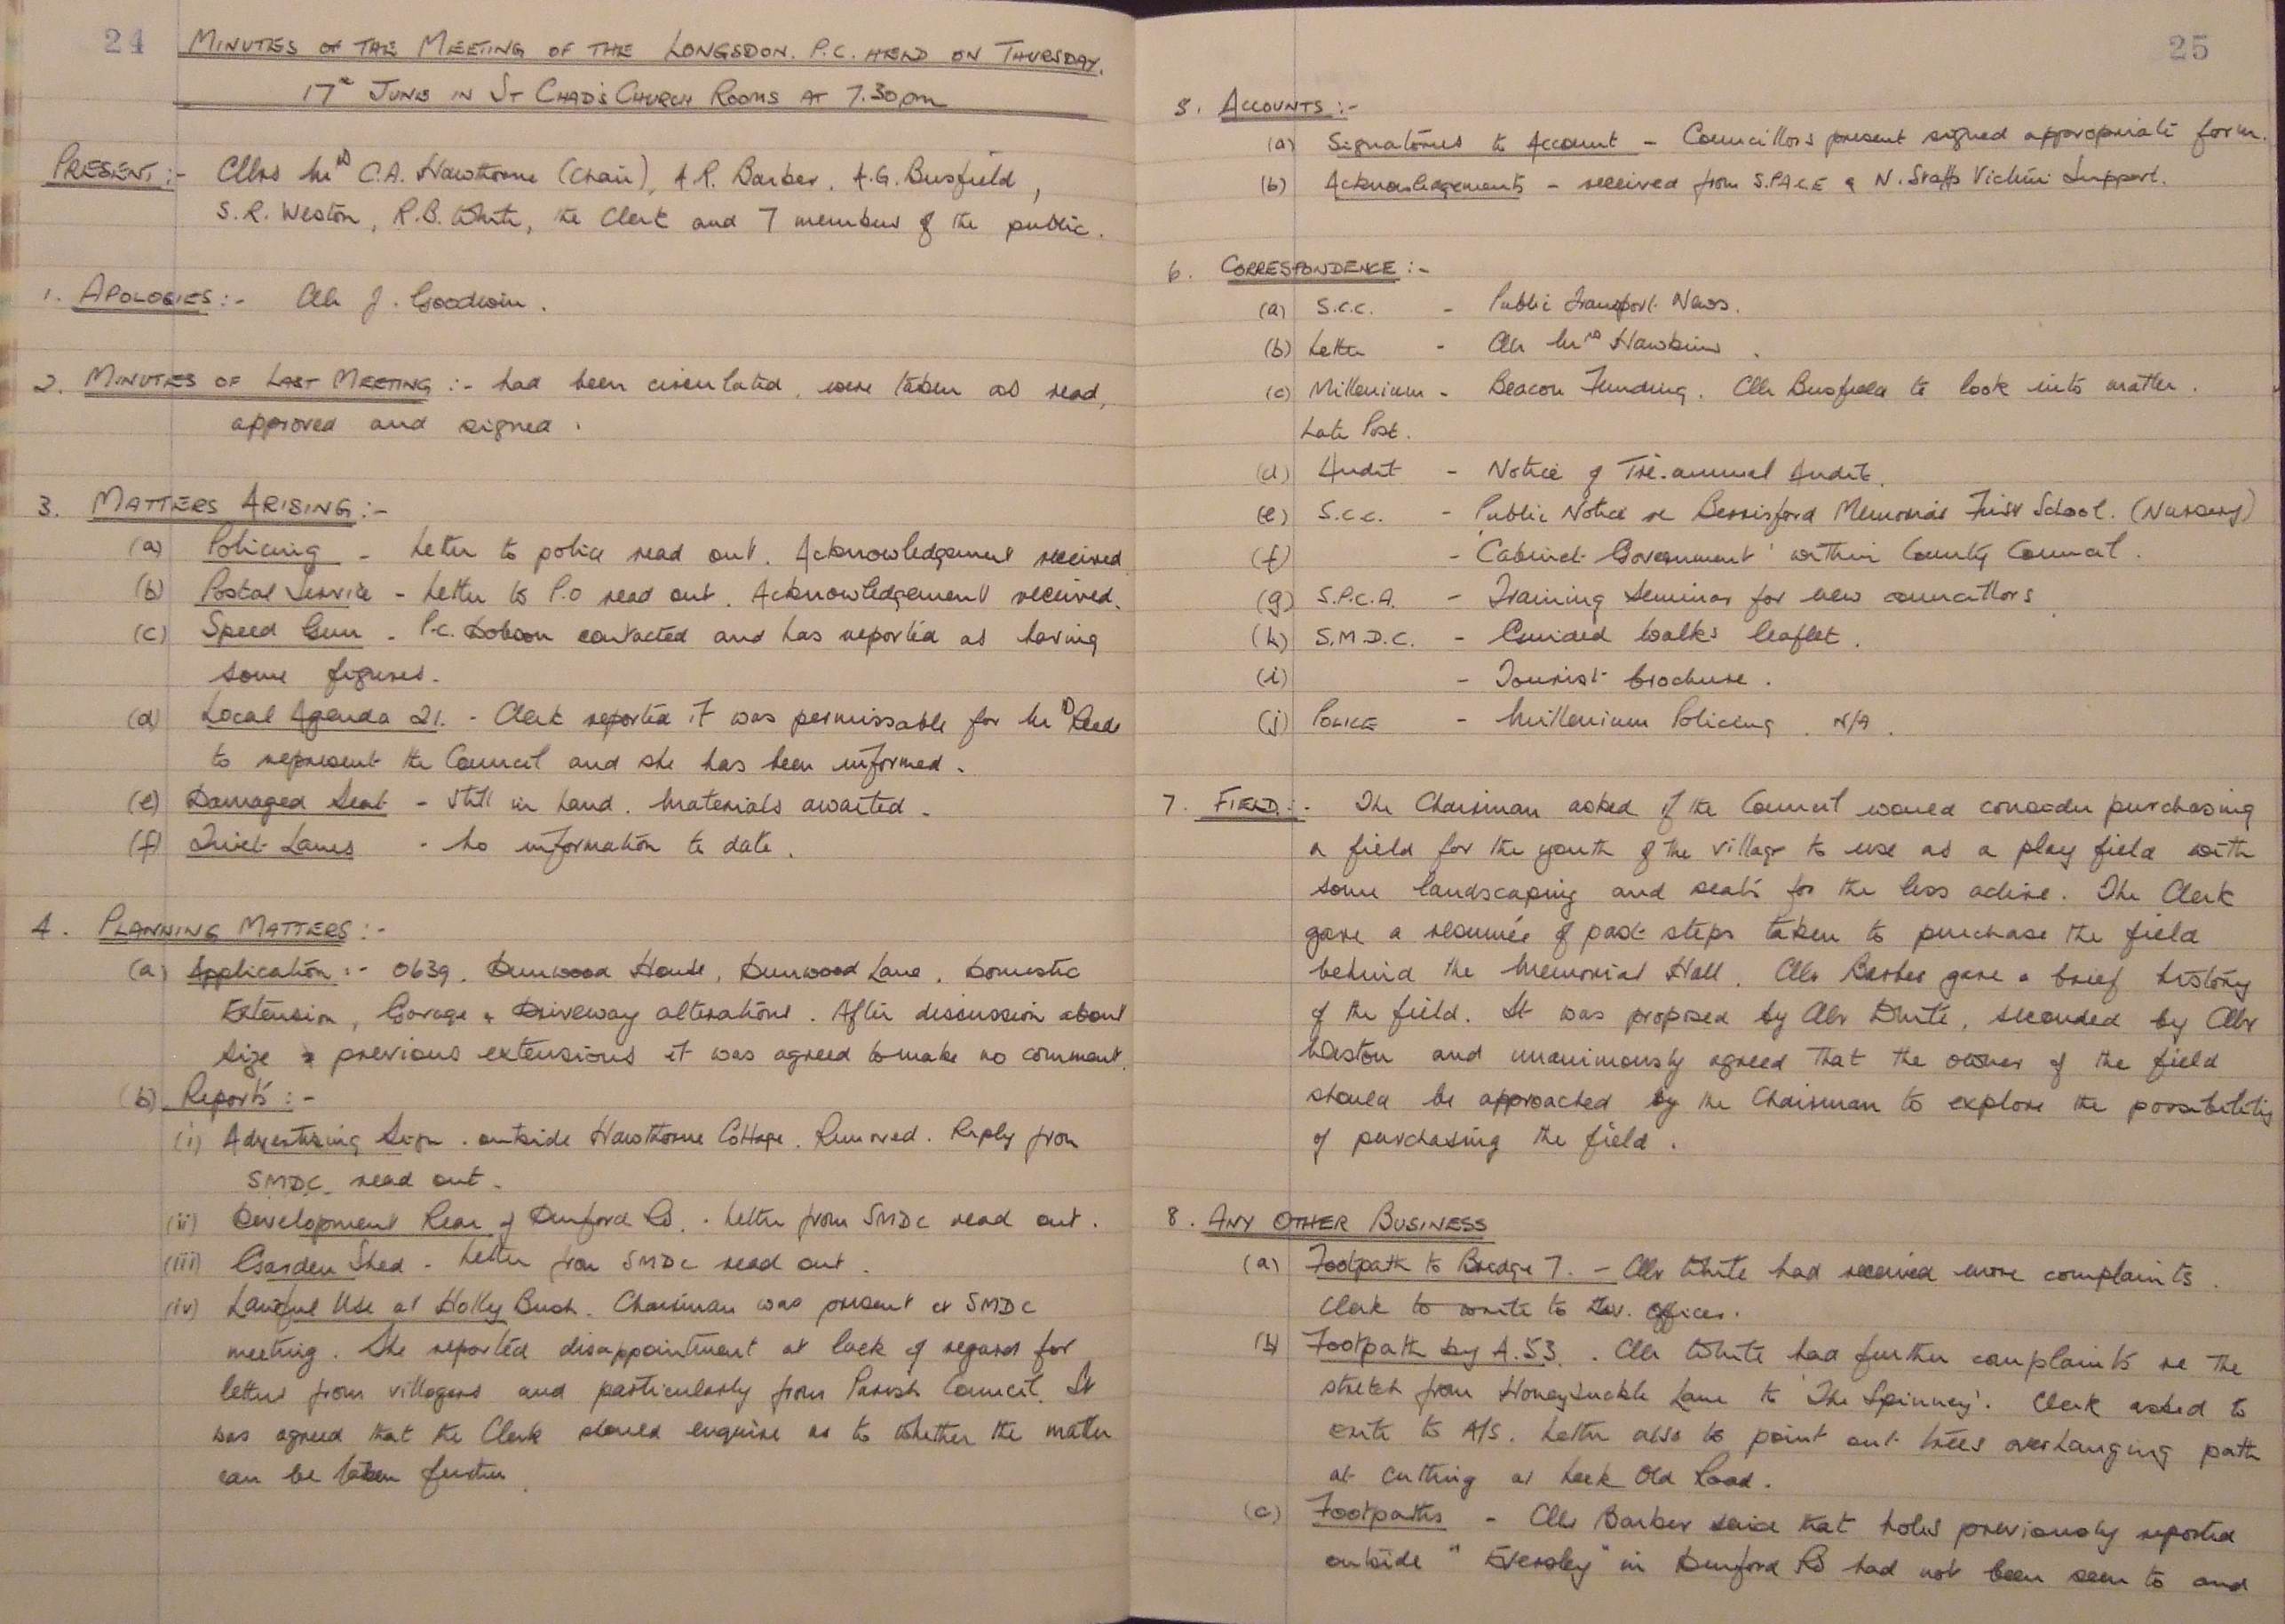 24
MINUTES OF THE MEETING OF THE LONGSDON. P.C. HELD ON THURSDAY.
17th JUNE IN ST CHAD'S CHURCH ROOMS AT 7.30pm
PRESENT:- Cllrs Mrs C.A. Hawthorne (Chair), A.R. Barker, A.G. Busfield,
S.R. Weston, R.B. White, the Clerk and 7 members of the public.
1. APOLOGIES:- Cllr J. Goodwin.
2. MINUTES OF LAST MEETING:- had been circulated, were taken as read,
approved and signed.
3. MATTERS ARISING:-
(a) Policing - Letter to police read out. Acknowledgement received
(b) Postal Service - Letter to P.O read out. Acknowledgement received.
(c) Speed Gun - P.C. Dobson contacted and has reported as having
some figures.
(d) Local Agenda 21. - Clerk reported it was permissable for Mrs
to represent the Council and she has been informed.
(e) Damaged Seat - Still in hand. Materials awaited.
(f) Quiet Lanes - No information to date.
4. PLANNING MATTERS:-
(a) Application:- 0639. Dunwood House, Dunwood Lane. Domestic
Extension, Garage & Driveway alterations. After discussion about
size & previous extensions it was agreed to make no comment.
(b) Reports:-
(i) Advertising Sign. outside Hawthorne Cottage. Removed. Reply from
SMDC read out.
(ii) Development Rear of Denford Rd. - Letter from SMDC read out.
(iii) Garden Shed - Letter from SMDC read out.
(iv) Lawful Use at Holly Bush. Chairman was present at SMDC
meeting. She reported disappointment at lack of regard for
letters from villagers and particularly from Parish Council. It
was agreed that the Clerk should enquire as to whether the matter
can be taken further.
25
5. ACCOUNTS:-
(a) Signatories to Account - Councillors present signed appropriate form.
(b) Acknowledgements - received from S.PACE & N. Staffs Victim Support.
6. CORRESPONDENCE:-
(a) S.C.C. - Public Transport News.
(b) Letter - Cllr Mrs Hawkins.
(c) Millenium - Beacon Funding. Cllr Busfield to look into matter.
Late Post.
(d) Audit - Notice of Tri-annual Audit.
(e) S.C.C. - Public Notice re Berrisford Memorial First School. (Nursery)
(f) - 'Cabinet Government' within County Council.
(g) S.P.C.A. - Training Seminar for new councillors
(h) S.M.D.C. - Guided Walks leaflet.
(i) - Tourist brochure.
(j) POLICE - Millenium Policing. N/A.
7. FIELD:- The Chairman asked if the Council would consider purchasing
a field for the youth of the village to use as a play field with
some landscaping and seats for the less active. The Clerk
gave a resumée of past steps taken to purchase the field
behind the Memorial Hall. Cllr Barker gave a brief history
of the field. It was proposed by Cllr White, seconded by Cllr
Weston and unanimously agreed that the owner of the field
should be approached by the Chairman to explore the possibility
of purchasing the field.
8. ANY OTHER BUSINESS
(a) Footpath to Bridge 7. - Cllr White had received more complaints.
Clerk to write to officer.
(b) Footpath by A.53. - Cllr White had further complaints re the
stretch from Honeysuckle Lane to 'The Spinney'. Clerk asked to
write to A/S. Letter also to point out trees overhanging path
at cutting at Leek Old Road.
(c) Footpaths - Cllr Barker said that holes previously reported
outside "Eversley" in Denford Rd had not been seen to and